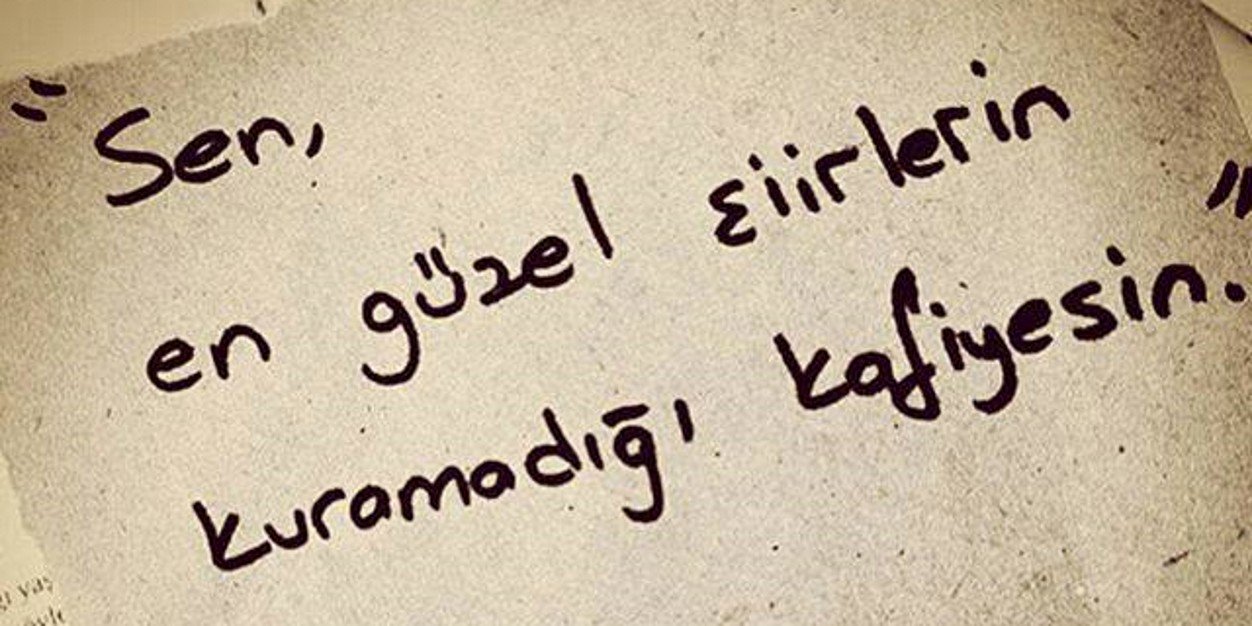 "Sen,
en güzel şiirlerin
kuramadığı kafiyesin."